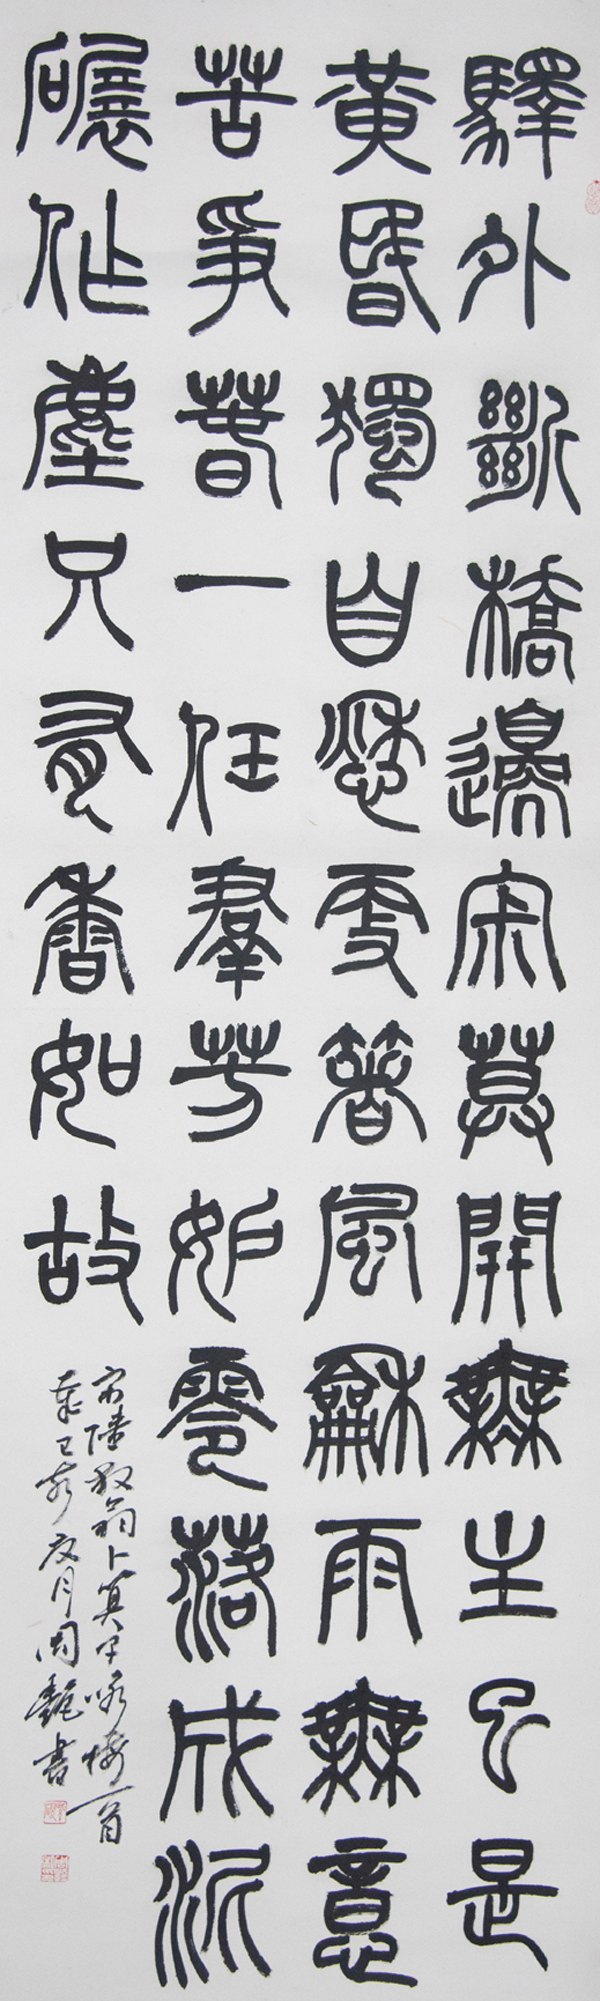 驛外斷橋邊寂莫開無主已是
黃昏獨自愁更箸風龢雨無意
苦爭春一任羣芳妒零落成泥
碾作塵只有香如故
宋陸放翁卜算子咏梅一首
癸巳夏月周書